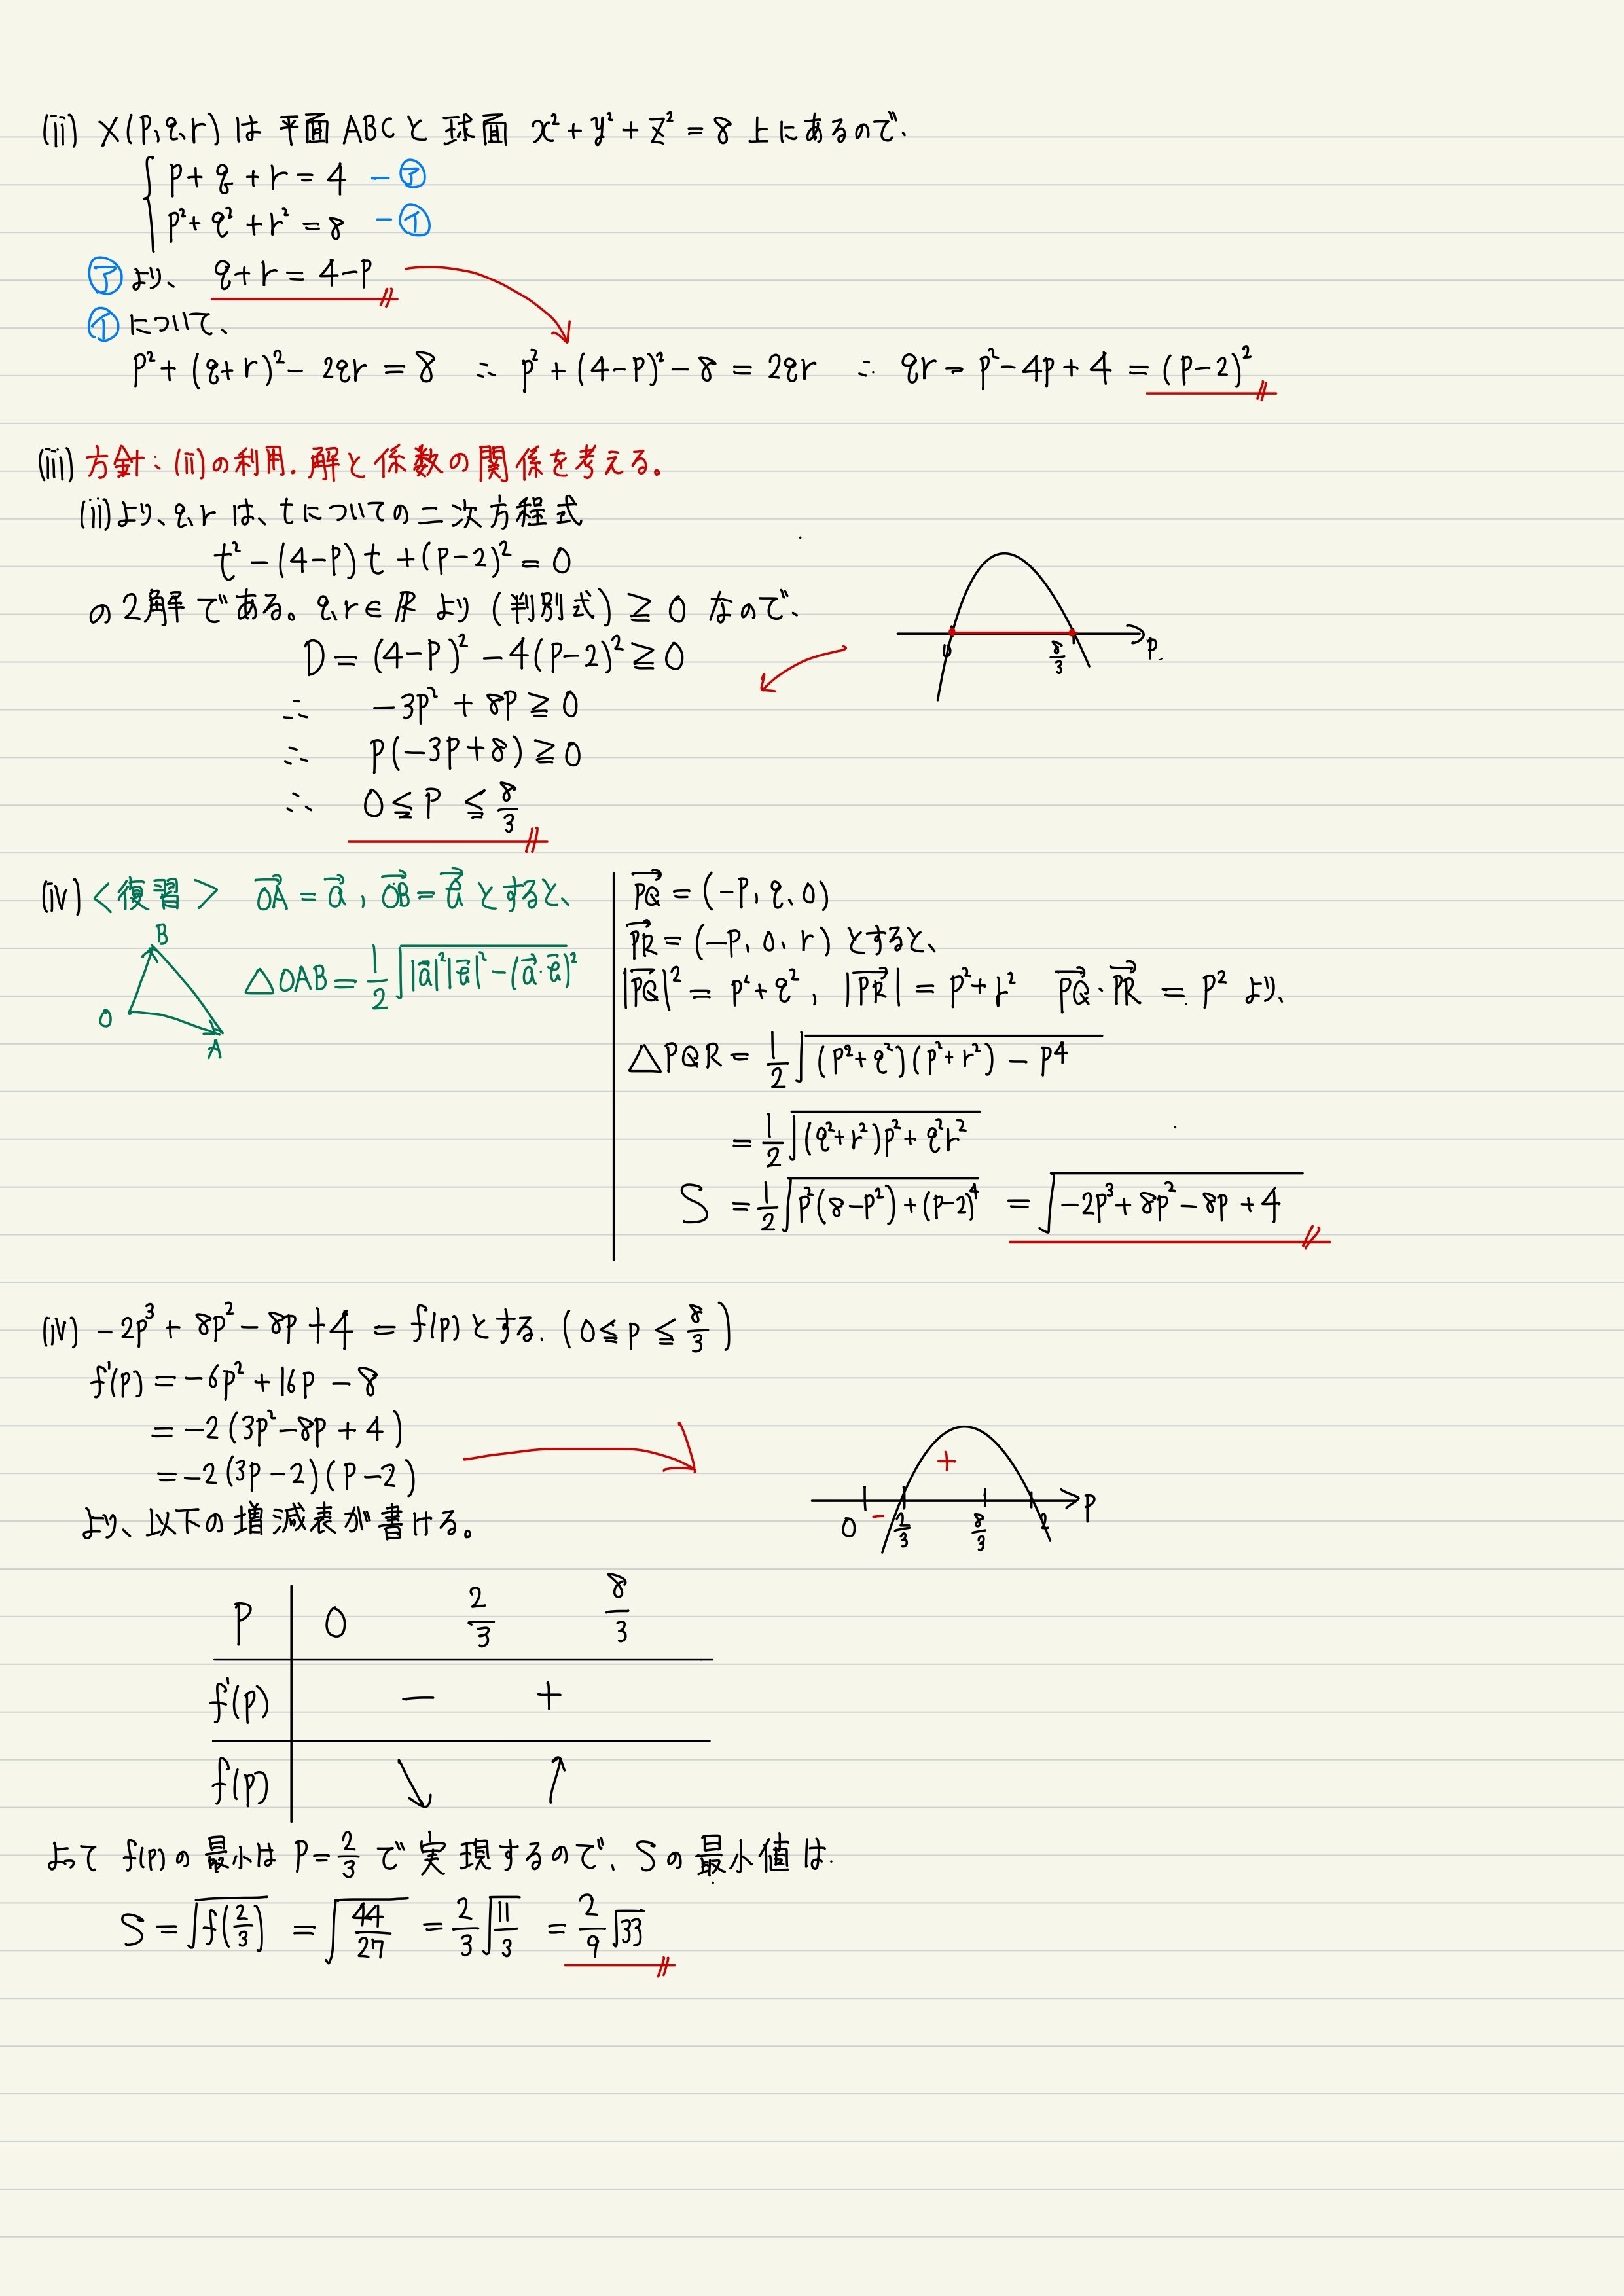 (ii) X(P,q,r) は 平面 ABC と 球面 x²+y²+z²=8 上にあるので、
p+q+r=4 −㋐
p²+q²+r²=8 −㋑
㋐より、 q+r=4−p
㋑について、
p²+(q+r)²−2qr=8 ∴ p²+(4−p)²−8=2qr ∴ qr−p²−4p+4=(p−2)²
(iii) 方針:(ii)の利用. 解と係数の関係を考える。
(ii)より、q,r は、tについての二次方程式
t²−(4−p)t+(p−2)²=0
の2解である。q,r∈ℝ より (判別式)≧0 なので、
D=(4−p)²−4(p−2)²≧0
∴ −3p²+8p≧0
∴ p(−3p+8)≧0
∴ 0≦p≦8/3
0 8/3 p
(iv) <復習> OA→=a→, OB→=b→とすると、
B
O
A
△OAB=1/2√|a→|²|b→|²−(a→·b→)²
PQ→=(−p,q,0)
PR→=(−p,0,r) とすると、
|PQ→|²=p²+q², |PR→|=p²+r² PQ→·PR→=p² より、
△PQR=1/2√(p²+q²)(p²+r²)−p⁴
=1/2√(q²+r²)p²+q²r²
S=1/2√p²(8−p²)+(p−2)⁴ =√−2p³+8p²−8p+4
(iv) −2p³+8p²−8p+4=f(p)とする. (0≦p≦8/3)
f'(p)=−6p²+16p−8
=−2(3p²−8p+4)
=−2(3p−2)(p−2)
より、以下の増減表が書ける。
+
0 − 2/3 8/3 2 p
P 0 2/3 8/3
f'(p) − +
f(p) ↘ ↗
よって f(p)の最小は P=2/3 で実現するので、Sの最小値は.
S=√f(2/3) =√44/27 =2/3√11/3 =2/9√33